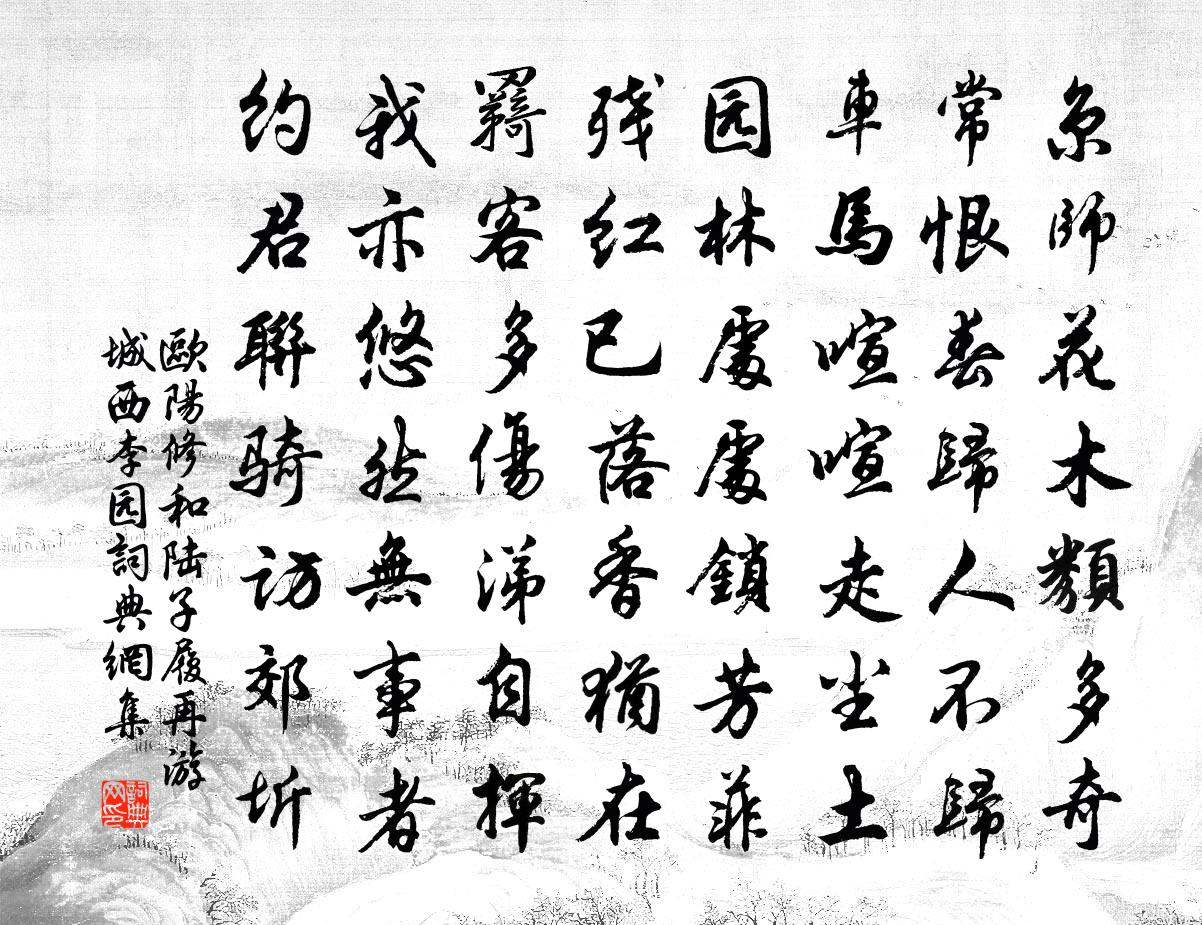 京師花木類多奇
常恨春歸人不歸
車馬喧喧走尘土
园林處處鎖芳菲
残红已落香猶在
羁客多傷涕自揮
我亦悠然無事者
约君聯騎訪郊圻
歐陽修和陆子履再游
城西李园詞典網集